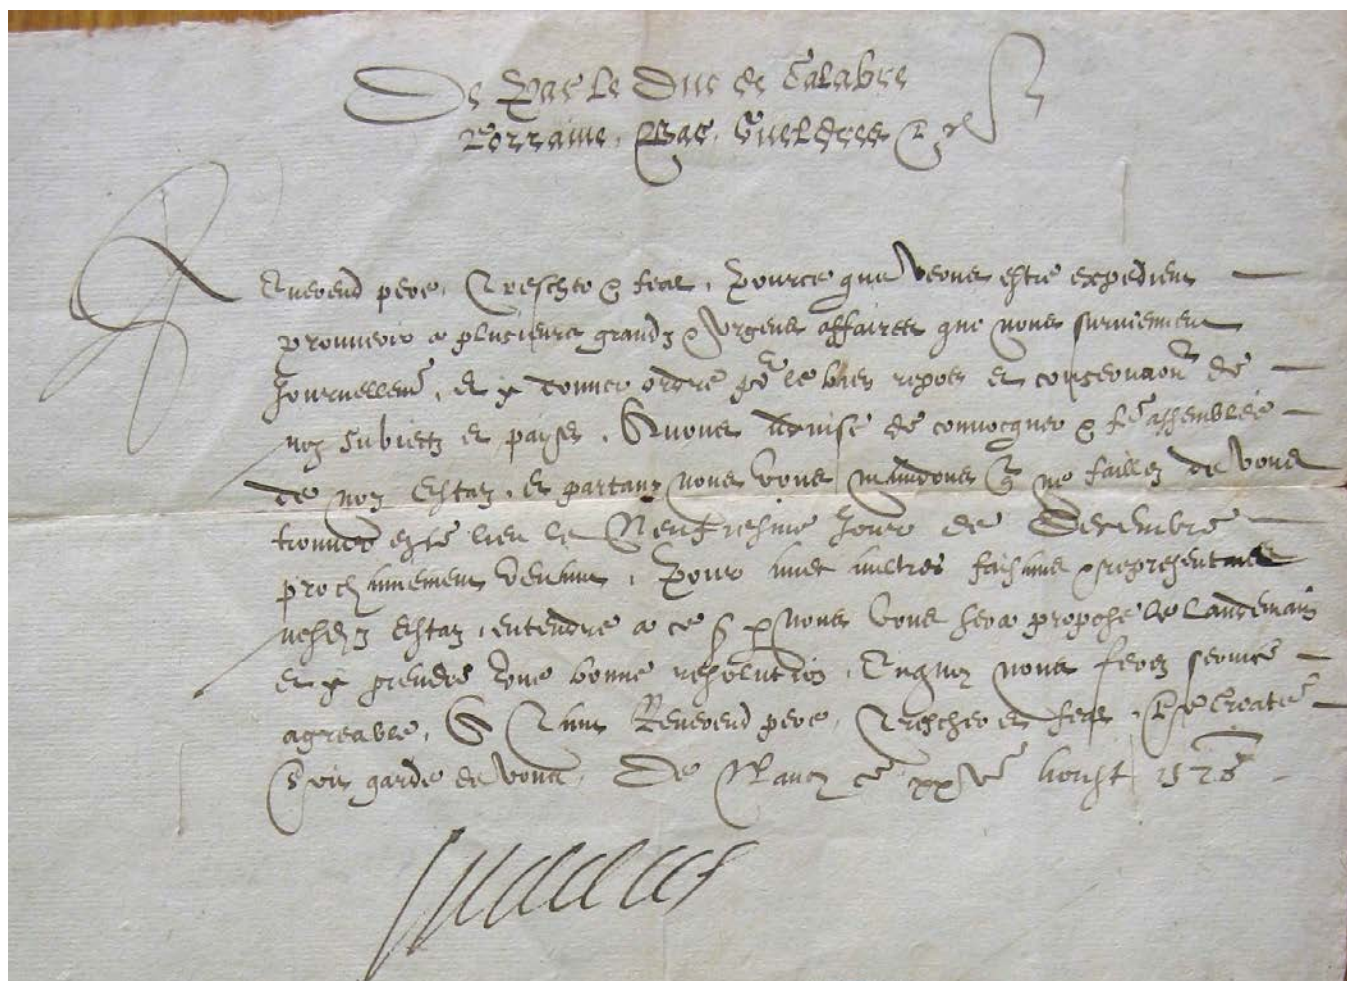 De Par le Duc de Calabre
Lorraine, Bar, Gueldres &c
Reverend pere, Trescher & feal, Pource que veons estre expedient
prouueoir a plusieurs grandz & vrgens affaires que nous suruiennent
Journellemt, et y donner ordre po le bien repos et conseruaon de
noz subiectz et pays, Auons aduisé de conuocquer & fe assemblée
de noz Estaz, et partant nous vous mandons q ne faillez de vous
trouuer en ce lieu le Neufiesme Jour de Decembre
prochainement venant, Pour auec aultres faisans & representans
nosdz Estaz, entendre a ce q p nous vous sera proposé le landemain
et y prendre vne bonne resolution, En quoy nous ferez seruice
agreable, A Tant Reuerend pere, Trescher et feal, le Creater
soit garde de vous, De Nancy ce xxve